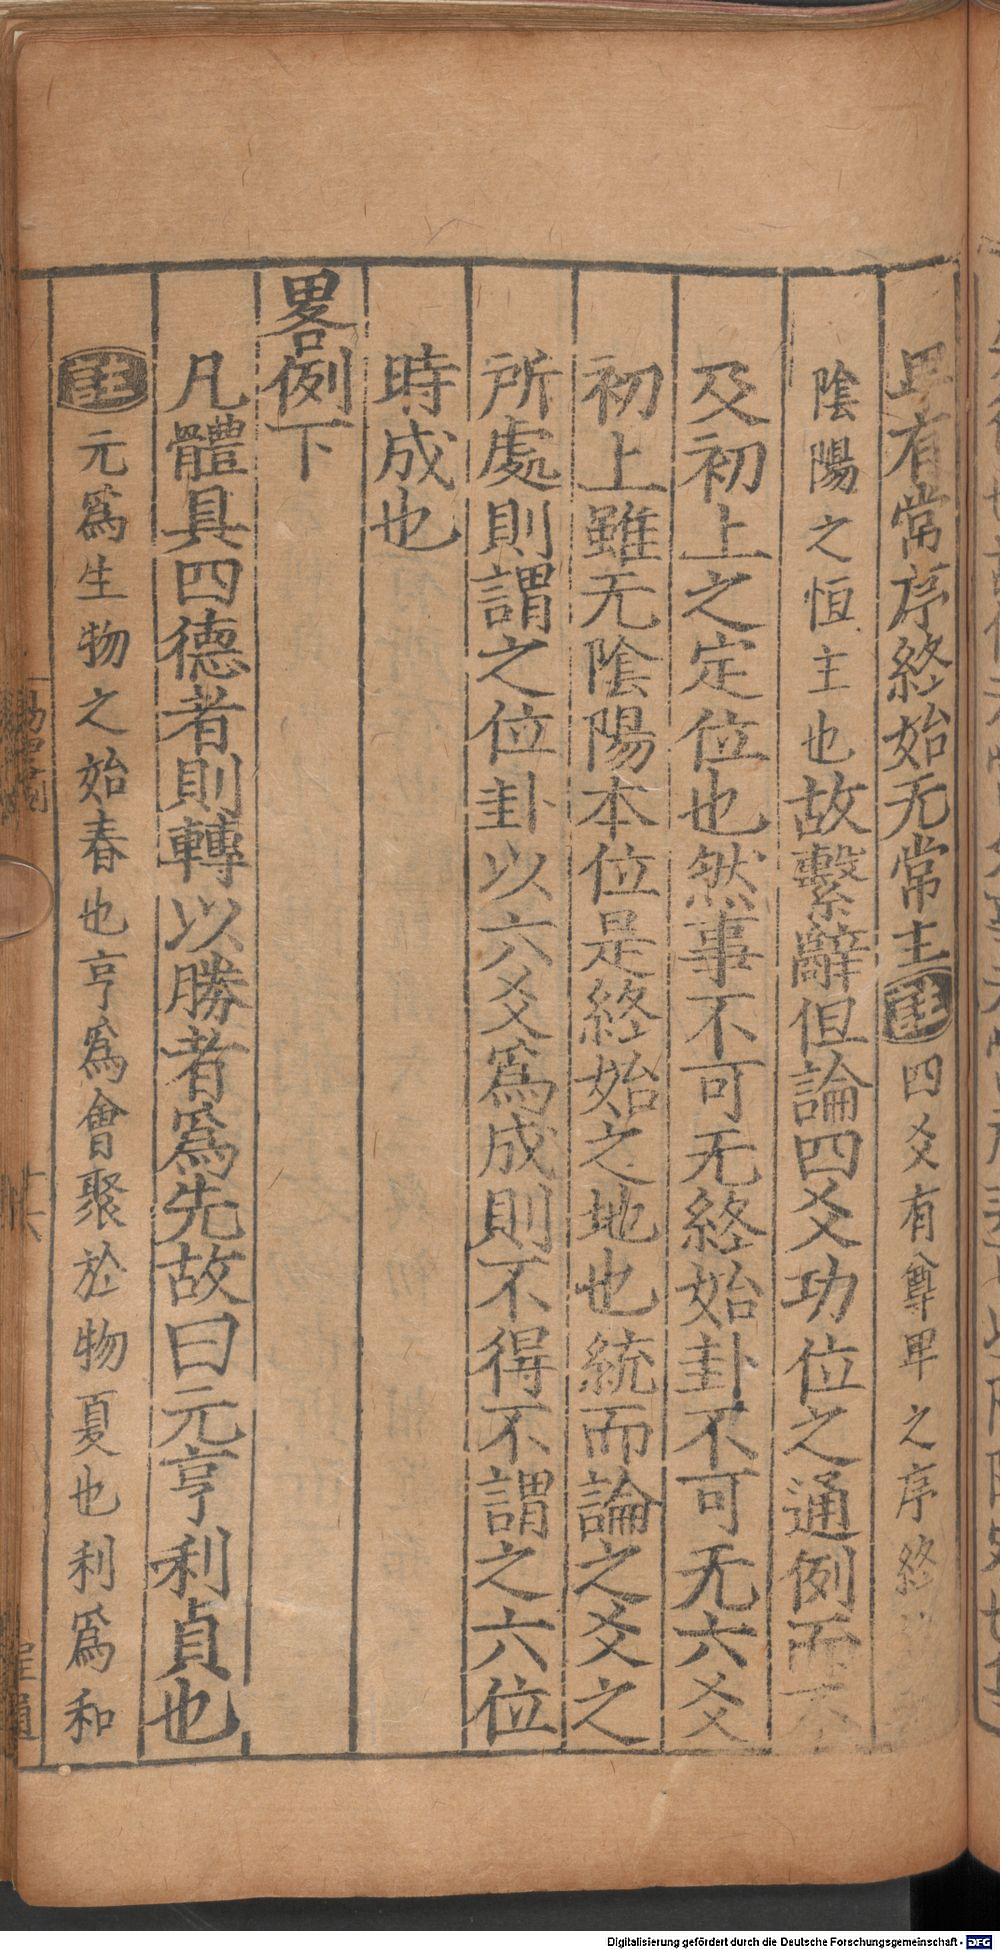 畢有常序終始无常主註四爻有尊卑之序終
陰陽之恒主也故繫辭但論四爻功位之通例而不
及初上之定位也然事不可无終始卦不可无六爻
初上雖无陰陽本位是終始之地也統而論之爻之
所處則謂之位卦以六爻爲成則不得不謂之六位
時成也
畧例下
凡體具四德者則轉以勝者爲先故曰元亨利貞也
註元爲生物之始春也亨爲會聚於物夏也利爲和
Digitalisierung gefördert durch die Deutsche Forschungsgemeinschaft - DFG